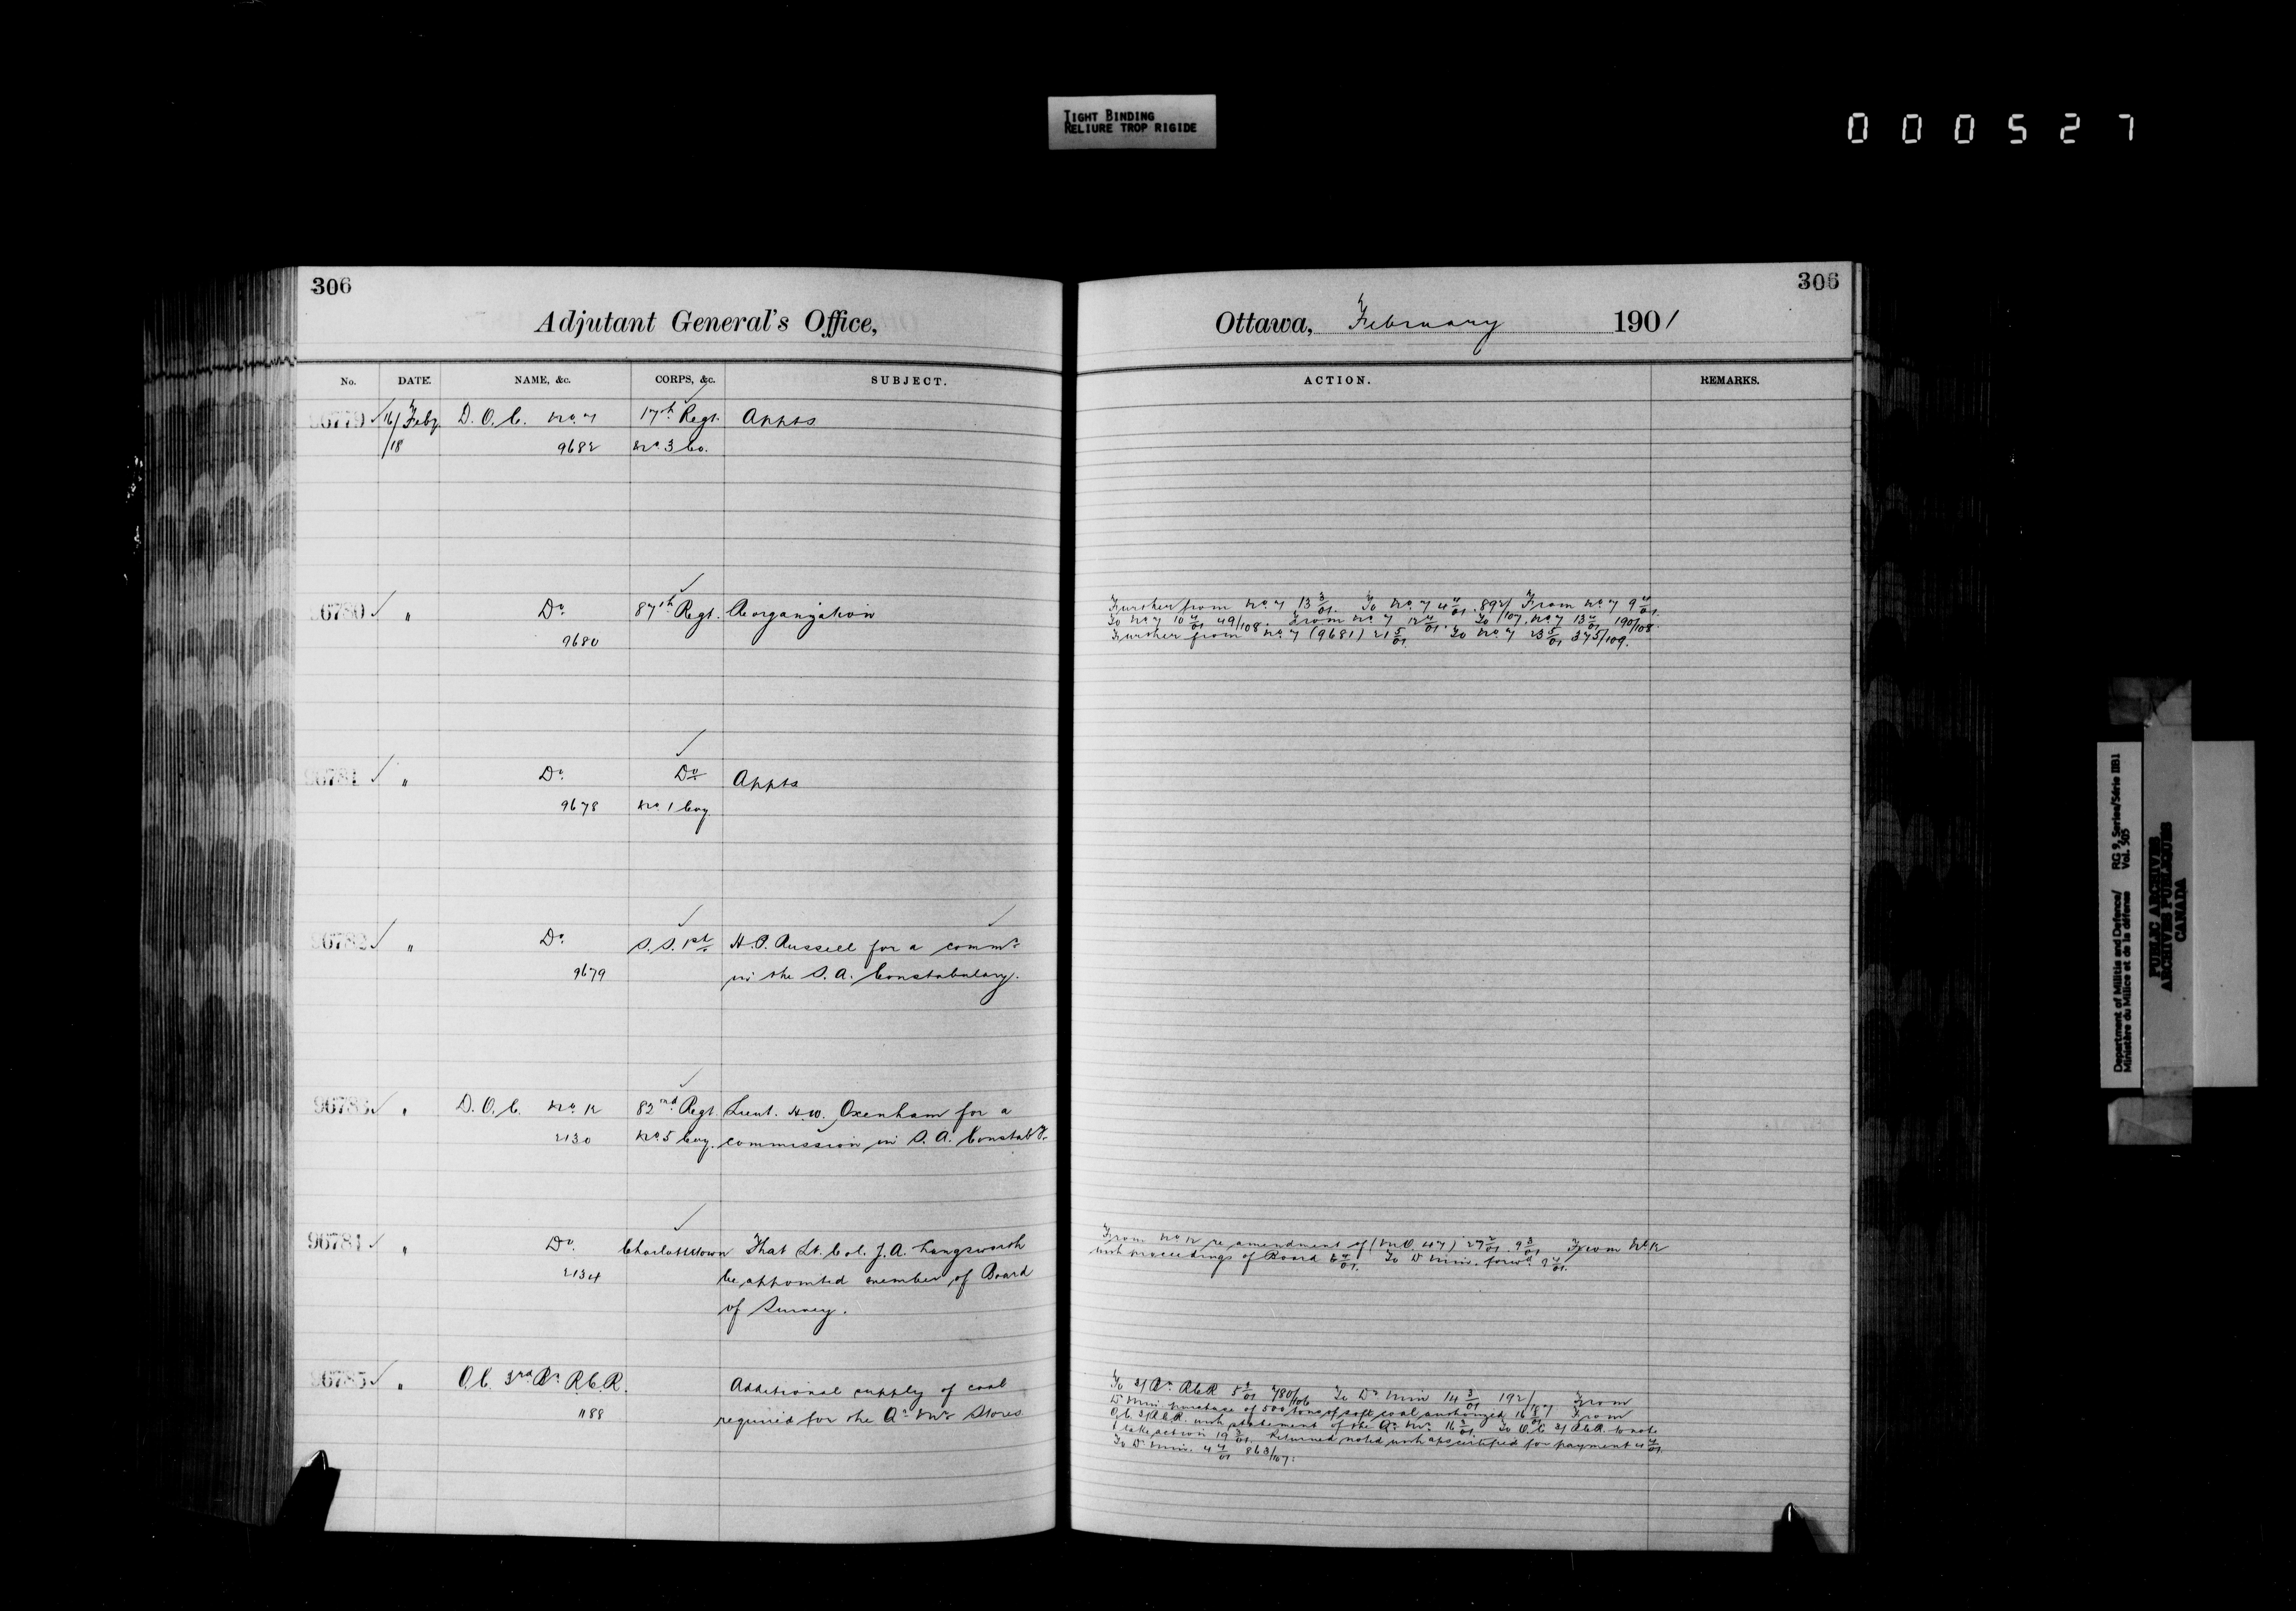 TIGHT BINDING
RELIURE TROP RIGIDE
000527
306
Adjutant General's Office,
No. DATE. NAME, &c. CORPS, &c. SUBJECT.
96779 ✓ 16/ Feby. D.O.C. No. 7 17th Regt. Appts
/18 9682 No. 3 Co.
96780 ✓ " Do. 87th Regt. Reorganization
9680
96781 ✓ " Do. Do. Appts
9678 No. 1 Coy.
96782 ✓ " Do. S.S. 1st H.S. Russell for a commn.
9679 in the S.A. Constabulary.
96783 ✓ " D.O.C. No. 12 82nd Regt. Lieut. H.W. Oxenham for a
2130 No. 5 Coy. commission in S.A. Constaby.
96784 ✓ " Do. Charlottetown That Lt. Col. J.A. Longworth
2134 be appointed member of Board
of Survey.
96785 ✓ " O.C. 3rd Bn R.C.R. Additional supply of coal
1188 required for the Qr. Mr. Stores
306
Ottawa, February 1901
ACTION. REMARKS.
Further from No. 7 13 3/01. To No. 7 4 4/01. 892/ From No. 7 9 4/01.
To No. 7 10 4/01 49/108. From No. 7 12 4/01. To /107. No. 7 13 4/01 190/108.
Further from No. 7 (9681) 21 5/01. To No. 7 23 5/01 375/109.
From No. 12 re amendment of (M.O. 47) 27 2/01. 9 3/01 From No. 12
with proceedings of Board 6 4/01. To D. Min. forwd. 9 4/01.
To 3/ Bn RCR 5 3/01 780/106 To Dr. Min 14 3/01 192/107 From
D. Min. purchase of 500 tons of soft coal authorized 16 From
O.C. 3/ R.C.R. with statement of the Qr. Mr. 16 3/01. To O.C. 3/ RCR to note
& take action 19 3/01. Returned noted with certified for payment 4 4/01.
To D. Min. 4 4/01 863/107.
Department of Militia and Defence/ RG 9, Series/Série IIB1
Ministère du Milice et de la défense Vol. 505
PUBLIC ARCHIVES
ARCHIVES PUBLIQUES
CANADA